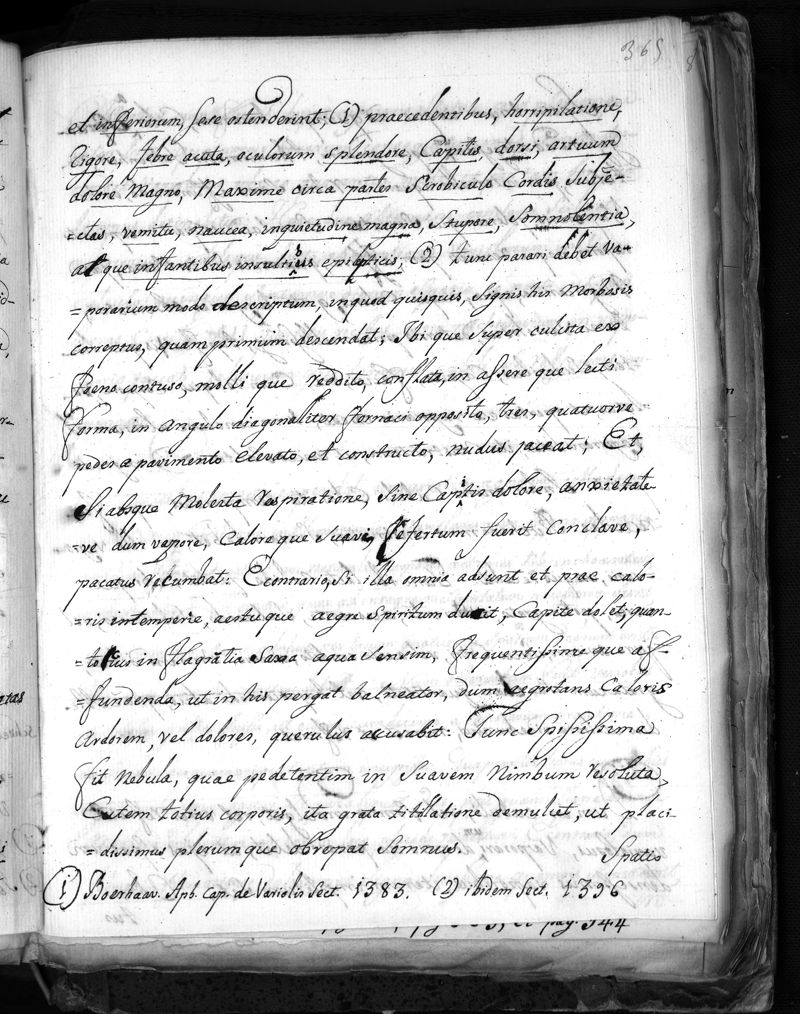 365
et inferiorum, sese ostenderint; (1) praecedentibus, horripilatione,
Rigore, febre acuta, oculorum splendore, Capitis, dorsi, artuum
dolore magno, Maxime circa partes Scrobiculo Cordis Subje-
=ctas, vomitu, naucea, inquietudine magna, Stupore, Somnolentia,
atque infantibus insultibus epilepticis; (2) tunc parari debet Va-
=porarium modo descriptum, inquod quisquis, Signis his Morbosis
correptus, quam primum descendat; Ibi que Super culcita ex
foeno contuso, molli que reddito, conflata, in assere que lecti
forma, in angulo diagonaliter fornaci opposito, tres, quatuorve
pedes a pavimento elevato, et constructo, nudus jaceat; Et,
Si absque Molesta respiratione, Sine Capitis dolore, anxietate
=ve dum vapore, Calore que Suavi, refertum fuerit Conclave,
pacatus recumbat: E contrario, Si illa omnia adsunt et prae calo-
=ris intemperie, aestu que aegre Spiritum ducit, Capite dolet, quan-
=tocius in flagrãtia Saxa aqua Sensim, frequentissime que af-
=fundenda, ut in his pergat balneator, dum aegrotans Caloris
Ardorem, vel dolores, querulus accusabit: Tunc Spississima
fit Nebula, quae pedetentim in Suavem Nimbum resoluta,
Cutem totius corporis, ita grata titillatione demulcet, ut placi-
=dissimus plerumque obrepat Somnus.
Spatio
(1) Boerhaav. Aph. Cap. de Variolis Sect. 1383. (2) ibidem Sect. 1396
et pag. 344